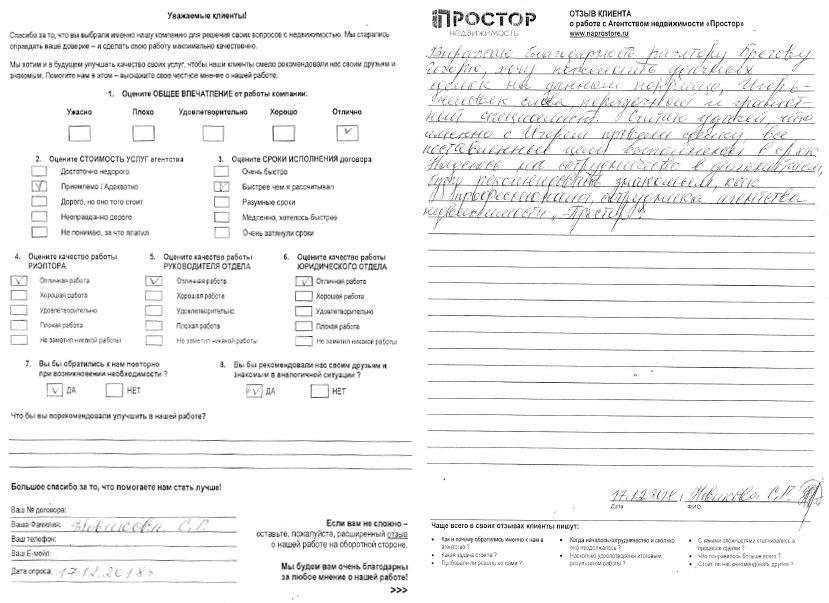 Уважаемые клиенты!
Спасибо за то, что вы выбрали именно нашу компанию для решения своих вопросов с недвижимостью. Мы старались
оправдать ваше доверие – и сделать свою работу максимально качественно.
Мы хотим и в будущем улучшать качество своих услуг, чтобы наши клиенты смело рекомендовали нас своим друзьям и
знакомым. Помогите нам в этом – выскажите свое честное мнение о нашей работе.
1. Оцените ОБЩЕЕ ВПЕЧАТЛЕНИЕ от работы компании:
Ужасно Плохо Удовлетворительно Хорошо Отлично
2. Оцените СТОИМОСТЬ УСЛУГ агентства
Достаточно недорого
Приемлемо / Адекватно
Дорого, но оно того стоит
Неоправданно дорого
Не понимаю, за что платил
3. Оцените СРОКИ ИСПОЛНЕНИЯ договора
Очень быстро
Быстрее чем я рассчитывал
Разумные сроки
Медленно, хотелось быстрее
Очень затянули сроки
4. Оцените качество работы
РИЭЛТОРА
Отличная работа
Хорошая работа
Удовлетворительно
Плохая работа
Не заметил никакой работы
5. Оцените качество работы
РУКОВОДИТЕЛЯ ОТДЕЛА
Отличная работа
Хорошая работа
Удовлетворительно
Плохая работа
Не заметил никакой работы
6. Оцените качество работы
ЮРИДИЧЕСКОГО ОТДЕЛА
Отличная работа
Хорошая работа
Удовлетворительно
Плохая работа
Не заметил никакой работы
7. Вы бы обратились к нам повторно
при возникновении необходимости ?
ДА НЕТ
8. Вы бы рекомендовали нас своим друзьям и
знакомым в аналогичной ситуации ?
ДА НЕТ
Что бы вы порекомендовали улучшить в нашей работе?
Большое спасибо за то, что помогаете нам стать лучше!
Ваш № договора:
Ваша Фамилия: Новикова С.Г.
Ваш телефон:
Ваш Е-мейл:
Дата опроса: 17.12.2018г.
Если вам не сложно –
оставьте, пожалуйста, расширенный отзыв
о нашей работе на оборотной стороне.
Мы будем вам очень благодарны
за любое мнение о нашей работе!
>>>
ПРОСТОР
НЕДВИЖИМОСТЬ
ОТЗЫВ КЛИЕНТА
о работе с Агентством недвижимости «Простор»
www.naprostore.ru
Выражаю благодарность риэлтору Брегову
Игорю, хочу пожелать удачных
сделок на данном поприще, Игорь-
человек слова, порядочный и грамот-
ный специалист. Считаю удачей, что
именно с Игорем провели сделку, все
поставленные цели выполнены в срок
Надеюсь на сотрудничество в дальнейшем,
буду рекомендовать знакомым, как
профессионала, сотрудника агентства
недвижимости „Простор".
17.12.2018, Новикова С.Г.
Дата ФИО
Чаще всего в своих отзывах клиенты пишут:
Как и почему обратились именно к нам в
агентство ?
Какая задача стояла ?
Пробовали ли решать ее сами ?
Когда началось сотрудничество и сколько
оно продолжалось ?
Насколько удовлетворены итоговым
результатом работы ?
С какими сложностями сталкивались в
процессе сделки ?
Что понравилось больше всего ?
Стоит ли нас рекомендовать другим ?